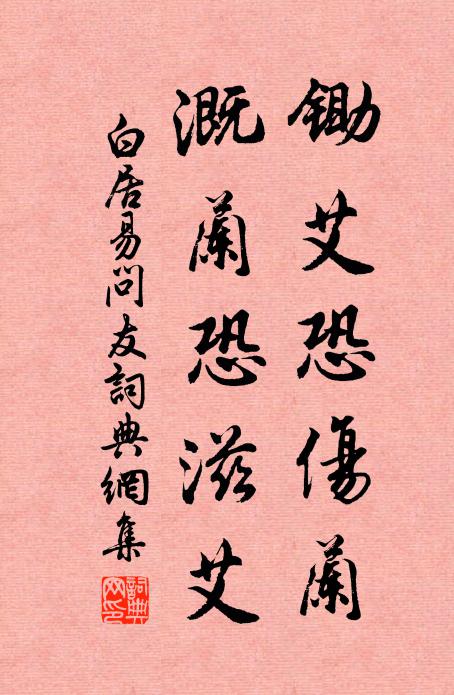 鋤艾恐傷蘭
溉蘭恐滋艾
白居易問友詞典網集
詞典
网印